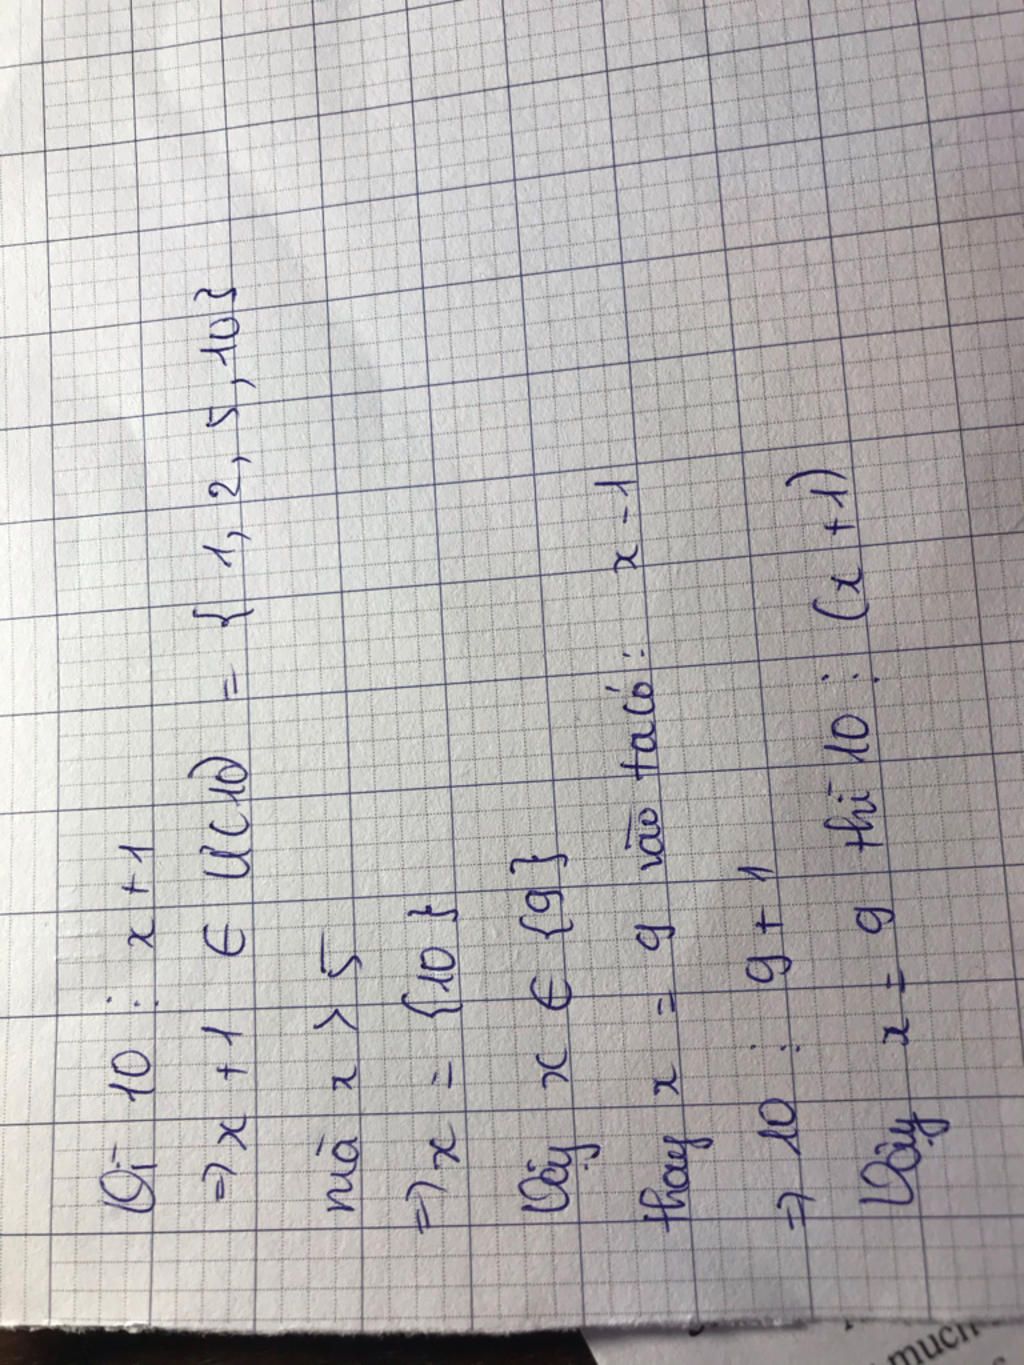 Vì 10 ⋮ x+1
=> x + 1 ∈ Ư(10) = { 1, 2, 5, 10}
mà x > 5
=> x = {10}
Vậy x ∈ {9}
thay x = 9 vào ta có: x - 1
=> 10 ⋮ 9 + 1
Vậy x = 9 thì 10 ⋮ (x +1)
much